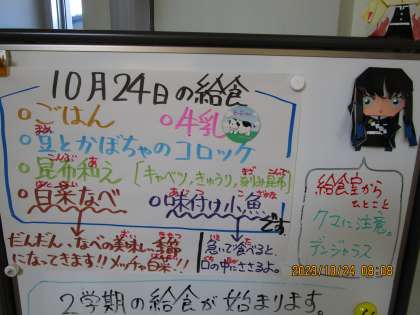 10月24日の給食
○ごはん ○牛乳
○豆とかぼちゃのコロッケ
○昆布和え[キャベツ、きゅうり、刻み昆布]
○白菜なべ ○味付け小魚 です
だんだん、なべの美味しい季節
になってきます!!メッチャ白菜!!
急いで食べると、
口の中にささるよ。
給食室から
ひとこと
クマに注意。
デンジャラス
2023/10/24 08:08
2学期の給食が始まります。